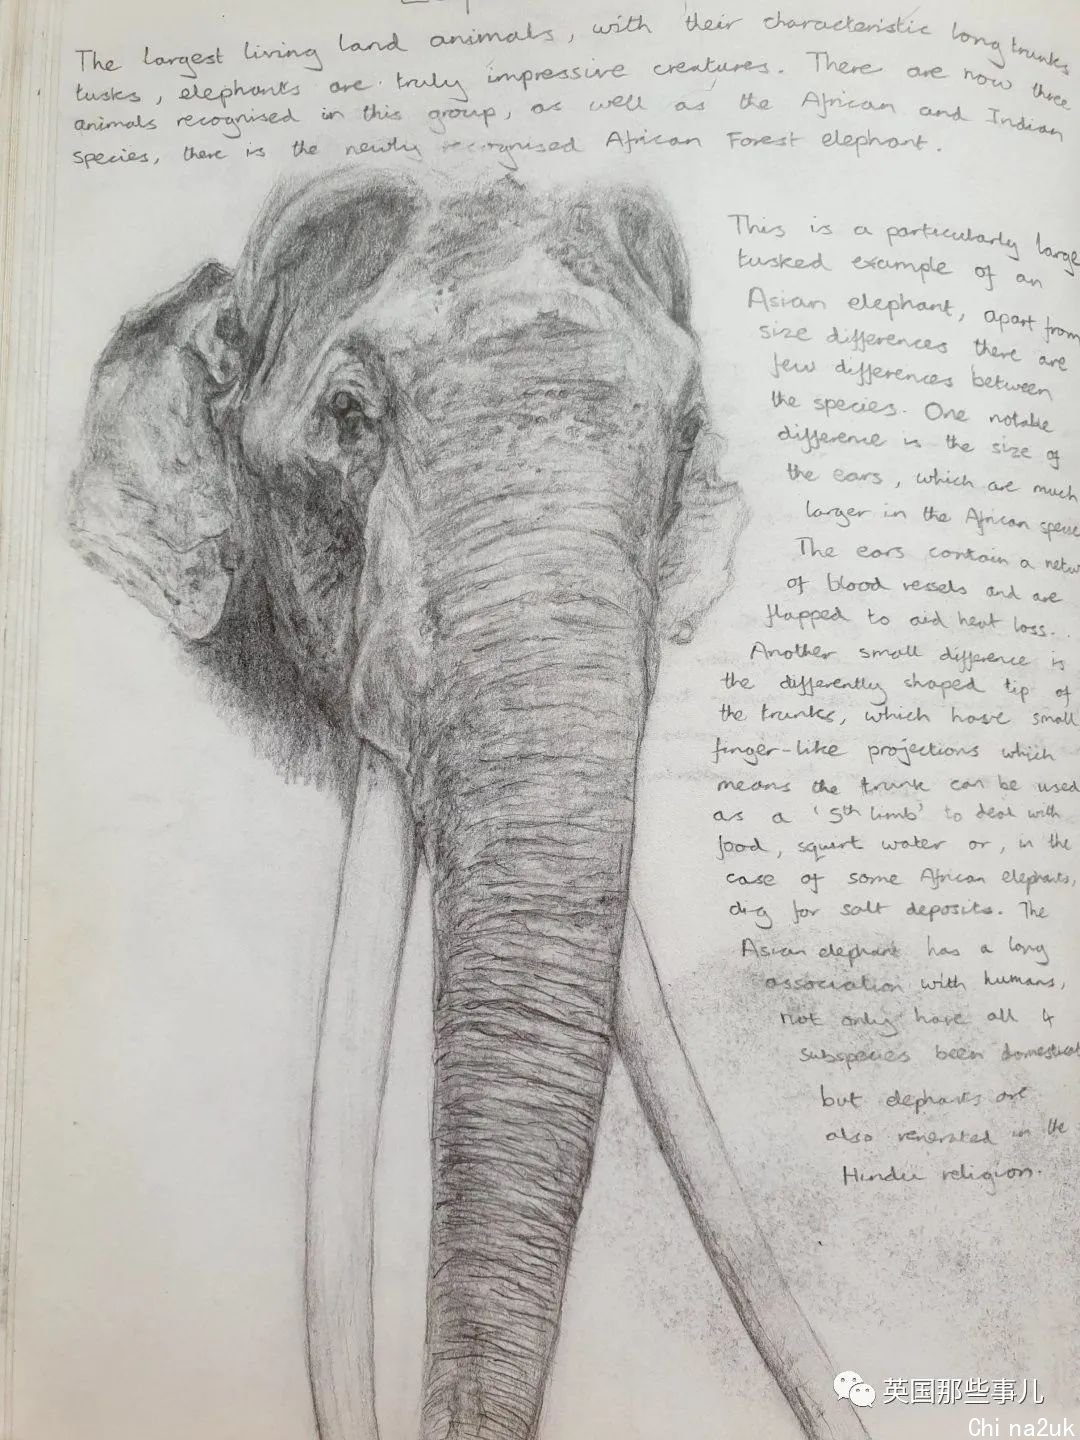 The largest living land animals, with their characteristic long trunks
tusks, elephants are truly impressive creatures. There are now three
animals recognised in this group, as well as the African and Indian
species, there is the newly recognised African Forest elephant.
This is a particularly large
tusked example of an
Asian elephant, apart from
size differences there are
few differences between
the species. One notable
difference is the size of
the ears, which are much
larger in the African
The ears contain a
of blood vessels and are
flapped to aid heat loss.
Another small difference is
the differently shaped tip of
the trunks, which have small
finger-like projections which
means the trunk can be used
as a '5th limb' to deal with
food, squirt water or, in the
case of some African elephants,
dig for salt deposits. The
Asian elephant has a long
association with humans,
not only have all 4
subspecies been
but elephants are
also venerated in the
Hindu religion.
英国那些事儿
Chi na2uk